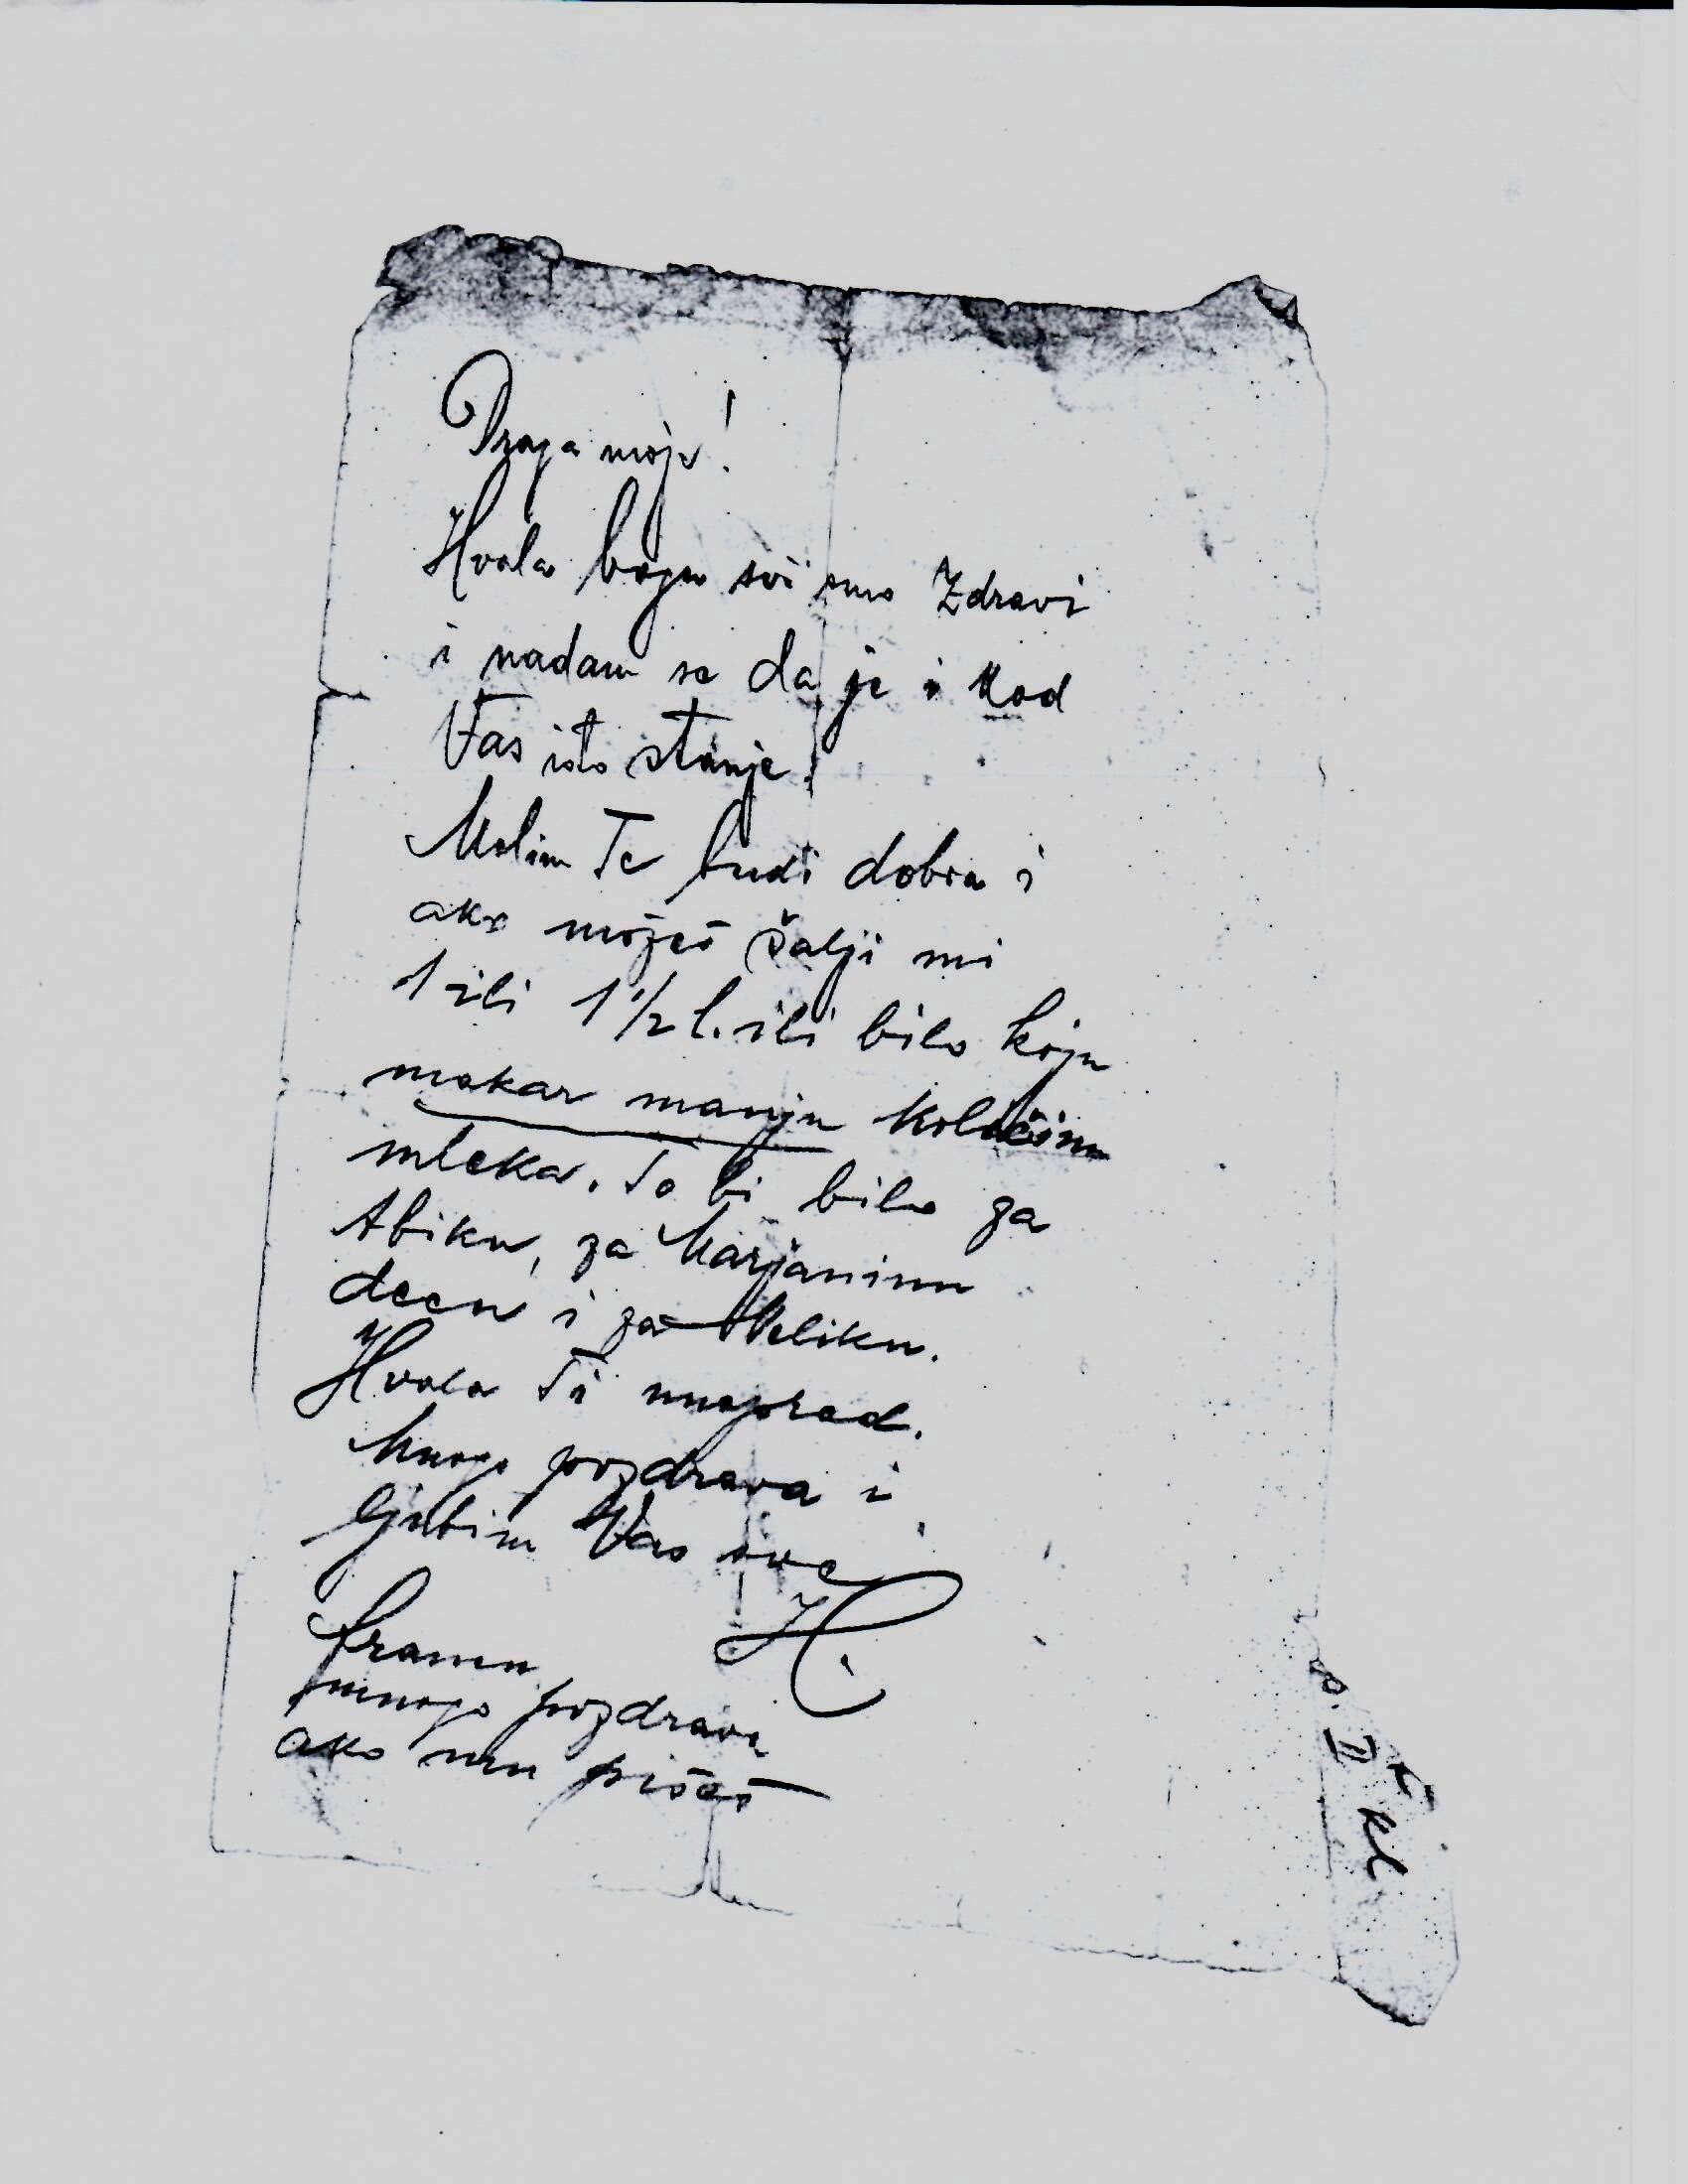 Draga moja!
Hvala bogu svi smo zdravi
i nadam se da je i kod
Vas isto stanje.
Molim Te budi dobra i
ako možeš šalji mi
1 ili 1 1/2 l. ili bilo koju
makar manju količinu
mleka. To bi bilo za
Abiku, za Marjaninu
decu i za Veliku.
Hvala Ti unapred.
Mnogo pozdrava i
ljubim Vas sve
H.
mnogo pozdravi
ako mu pišeš
II kl